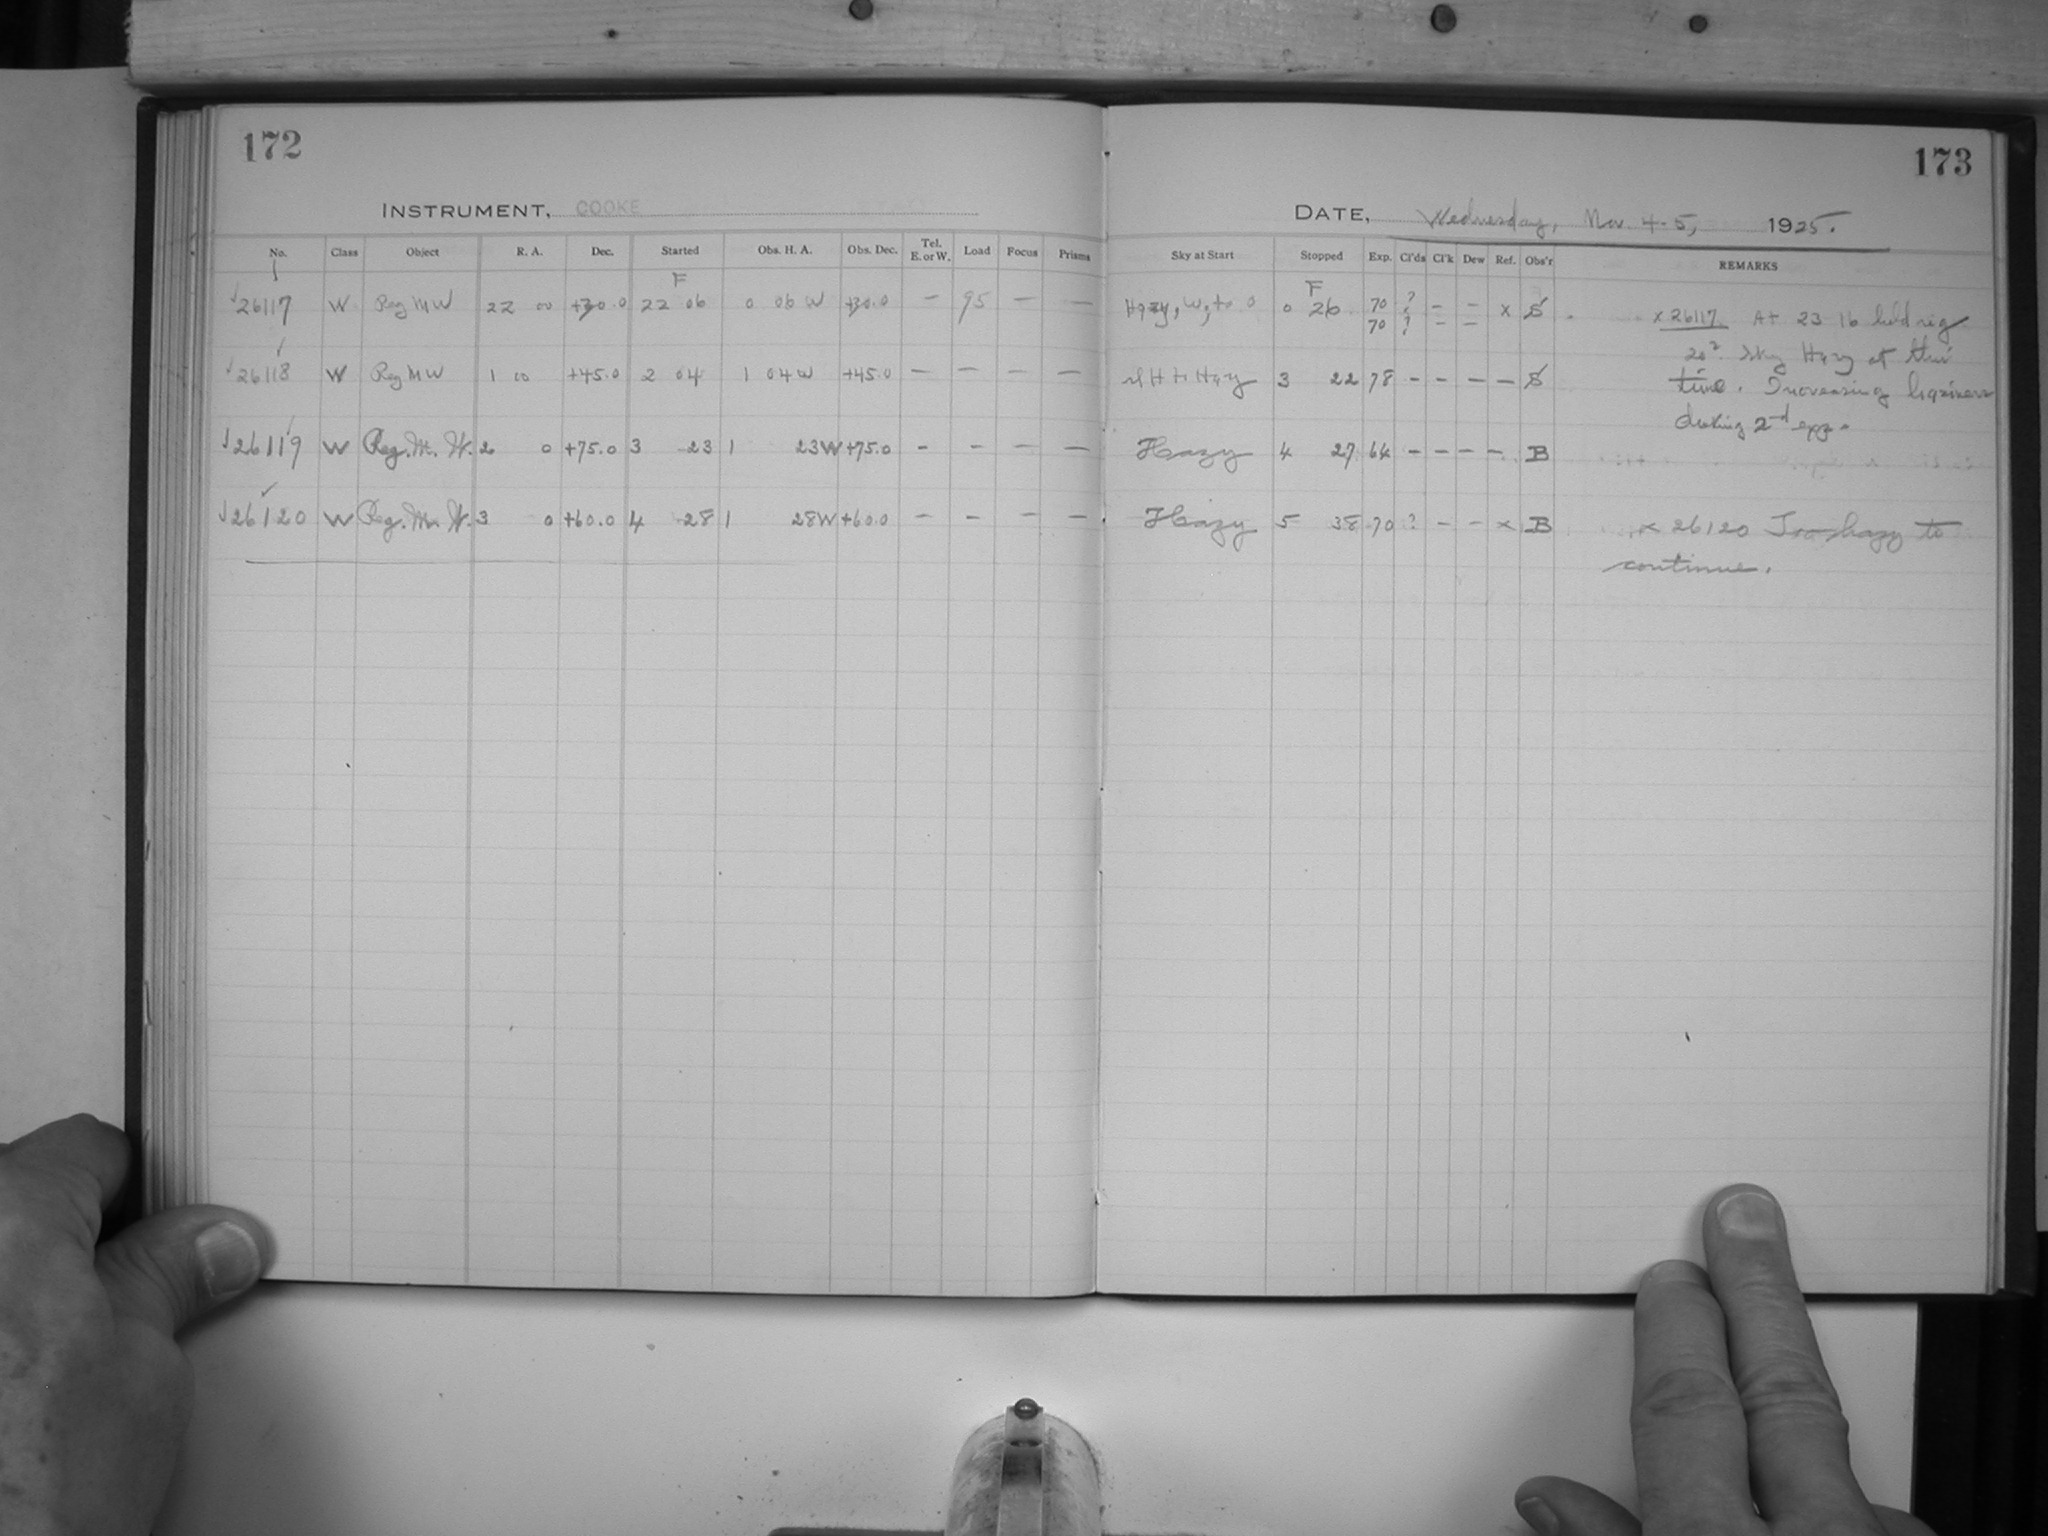 172
INSTRUMENT, COOKE
No. Class Object R. A. Dec. Started Obs. H. A. Obs. Dec. Tel. E. or W. Load Focus Prisms
F
26117 W Reg MW 22 00 +30.0 22 06 0 06 W +30.0 — 95 — —
26118 W Reg MW 1 00 +45.0 2 04 1 04 W +45.0 — — — —
26119 W Reg. M. W. 2 0 +75.0 3 23 1 23W +75.0 - - - —
26120 W Reg. M. W. 3 0 +60.0 4 28 1 28W +60.0 - - - —
173
DATE, Wednesday, Nov. 4-5, 1925.
Sky at Start Stopped Exp. Cl'ds Cl'k Dew Ref. Obs'r REMARKS
F
Hazy, W, to 0 0 26 70 ? - - x S
70 ? - -
Hazy 3 22 78 - - - - S
Hazy 4 27 64 - - - - B
Hazy 5 38 70 ? - - x B
x 26117 At 23 16 held rig
Sky Hazy at this
time. Increasing haziness
during 2nd exp.
x 26120 Too hazy to
continue.